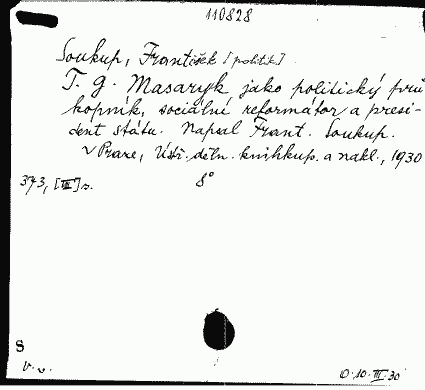 110828
Soukup, František [politik]
T. G. Masaryk jako politický prů
kopník, sociální reformátor a presi-
dent státu. Napsal Frant. Soukup.
V Praze, Ústř. děln. knihkup. a nakl., 1930
373, [III] s. 8°
S
V. v.
O. 10. III. 30